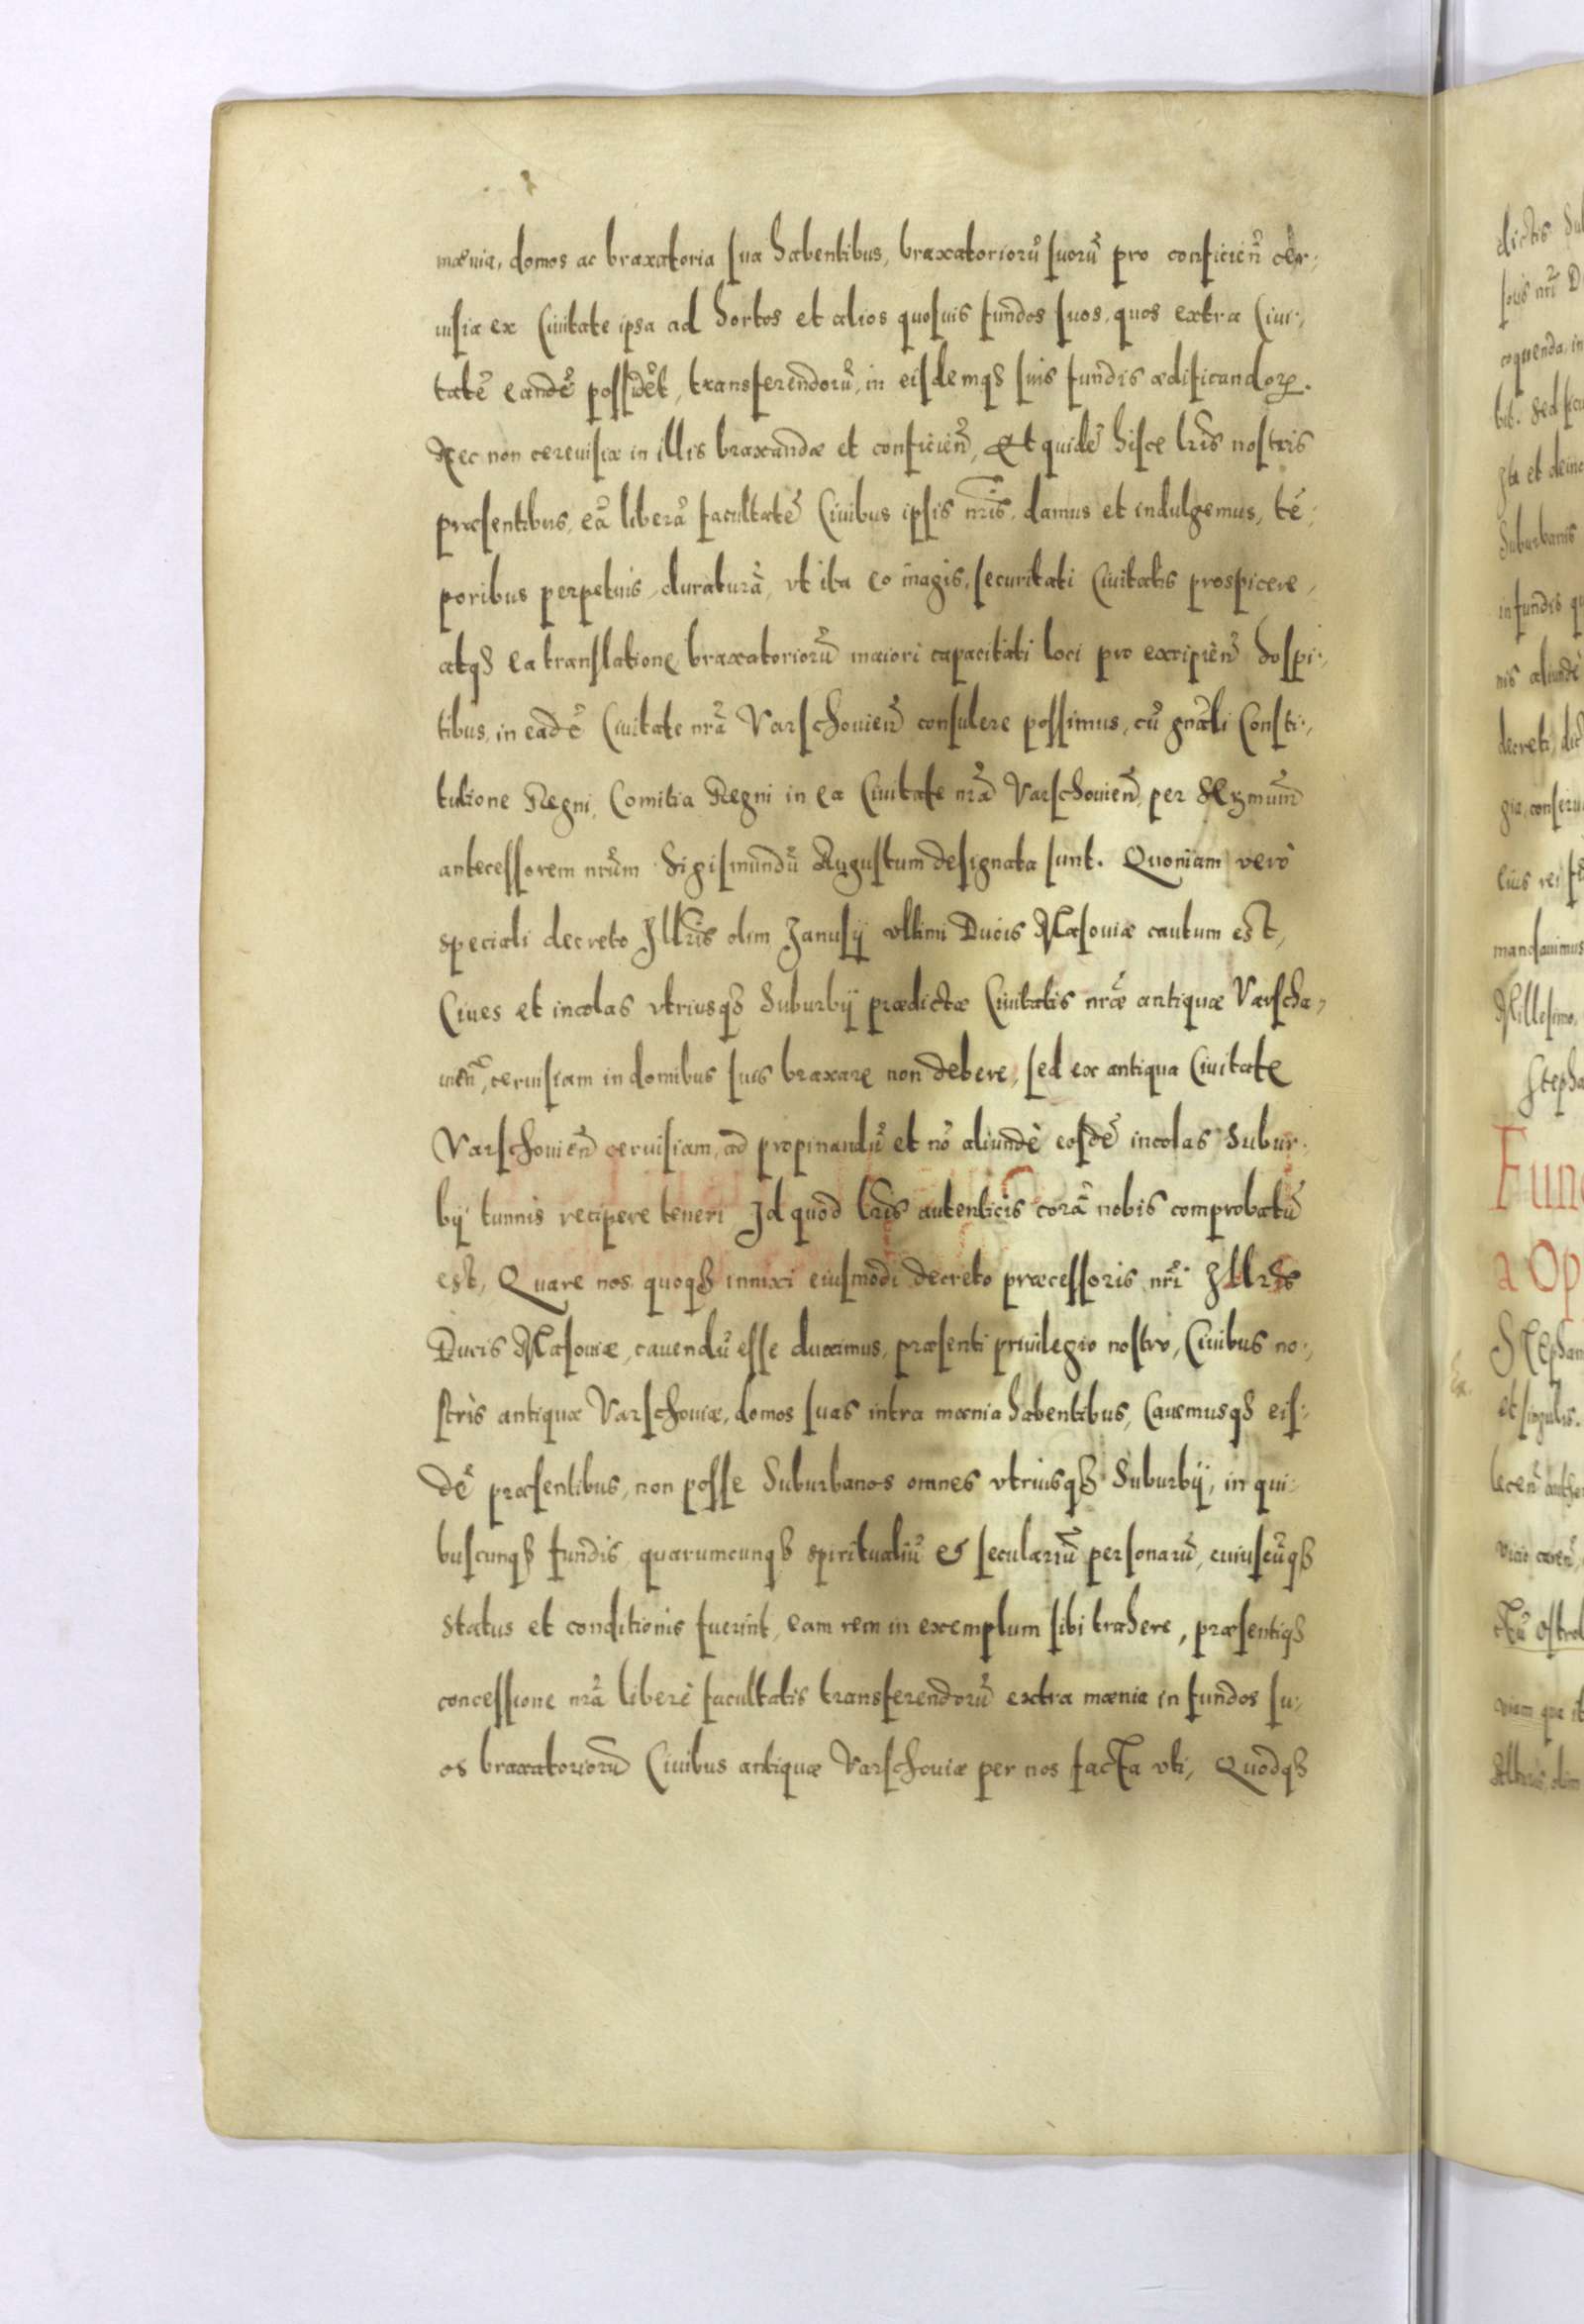 mænia, domos ac braxatoria sua habentibus, braxatoriorũ suorũ pro conficien̄ cer:,
uisia ex Ciuitate ipsa ad hortos et alios quosuis fundos suos, quos extra Ciui:,
tatẽ eandẽ possidẽt, transferendorũ, in eisdemqȝ suis fundis ædificandoꝝ.
Nec non cereuisiæ in illis braxandæ et conficien̄, Et quidẽ hisce lr̃is nostris
præsentibus, eã liberã facultatẽ Ciuibus ipsis nr̃is, damus et indulgemus, tẽ:,
poribus perpetuis, duraturã, vt ita eo magis, securitati Ciuitatis prospicere,
atqȝ ea translatione braxatoriorũ maiori capacitati loci pro excipien̄ hospi:,
tibus, in eadẽ Ciuitate nr̃a Varschouien̄ consulere possimus, cũ gnãli Consti:,
tutione Regni, Comitia Regni in ea Ciuitate nr̃a Varschouien̄ per
antecessorem nr̃um Sigismundũ Augustum designata sunt. Quoniam verò
speciali decreto Illr̃is olim Janusij vltimi Ducis Masouiæ cautum est,
Ciues et incolas vtriusqȝ Suburbij prædictæ Ciuitatis nr̃æ antiquæ Varscha,
uien̄, ceruisiam in domibus suis braxare non debere, sed ex antiqua Ciuitate
Varschouien̄ ceruisiam, ad propinandũ et nõ aliundè eosdẽ incolas Subur:
bij tunnis recipere teneri Id quod lr̃is autenticis corã nobis comprobatũ
est, Quare nos quoqȝ innixi eiusmodi decreto præcessoris nr̃i Illr̃is
Ducis Masouiæ, cauendũ esse duximus, præsenti priuilegio nostro, Ciuibus no:,
stris antiquæ Varschouiæ, domos suas intra mænia habentibus, Cauemusqȝ eis:
dẽ præsentibus, non posse Suburbanos omnes vtriusqȝ Suburbij, in qui:
buscunqȝ fundis, quarumcunqȝ spiritualiũ & seculariũ personarũ, cuiuscũqȝ
status et conditionis fuerint, eam rem in exemplum sibi trahere, præsentiqȝ
concessione nr̃a liberè facultatis transferendorũ extra mænia in fundos su:
os braxatoriorũ Ciuibus antiquæ Varschouiæ per nos facta vti, Quodqȝ